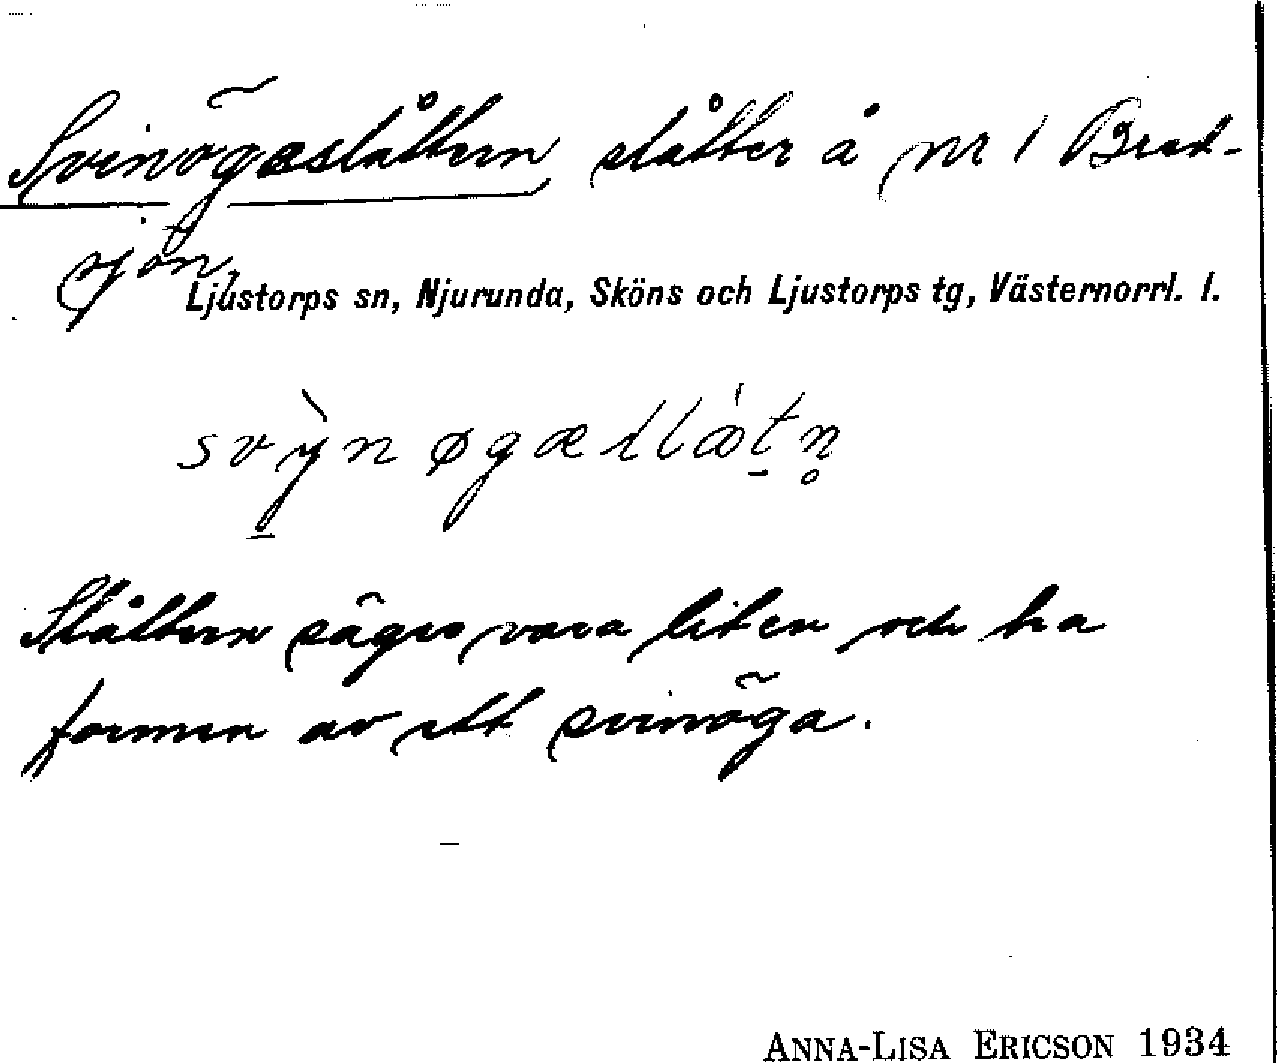 Svinögaslåttern slåtter å nr 1 Bred-
sjön,
Ljustorps sn, Njurunda, Sköns och Ljustorps tg, Västernorrl. l.
Slåttern säges vara liten och ha
formen av ett svinöga.
ANNA-LISA ERICSON 1934